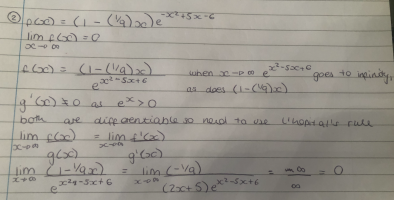 ② f(x) = (1 - (1/9)x)e^{-x²+5x-6}
lim x→∞ f(x) = 0
f(x) = (1-(1/9)x) / e^{x²-5x+6} when x→∞ e^{x²-5x+6} goes to infinity,
as does (1-(1/9)x)
g'(x) ≠ 0 as eˣ > 0
both are differentiable so need to use L'hopital's rule
lim x→∞ f(x)/g(x) = lim x→∞ f'(x)/g'(x)
lim x→∞ (1-1/9x) / e^{x²-5x+6} = lim x→∞ (-1/9) / (2x+5)e^{x²-5x+6} = -∞/∞ = 0